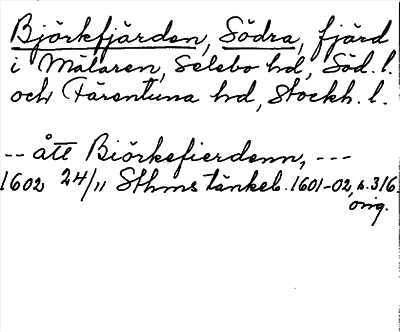 Björkfjärden, Södra, fjärd
i Mälaren, Selebo hd, Söd. l.
och Färentuna hd, Stockh. l.
-- ått Biörkefierdenn, ---
1602 24/11 Sthms tänkeb. 1601-02, s. 316.
orig.